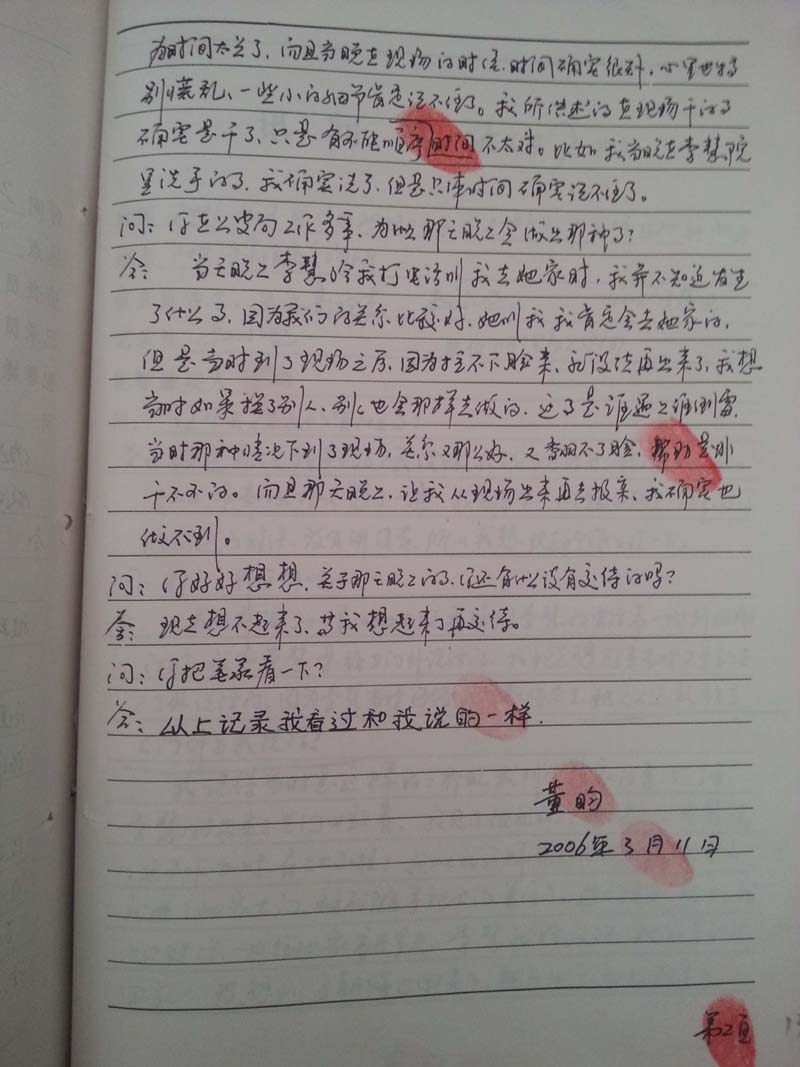 为时间太长了，而且当晚在现场的时候，时间确实很短，心里也特
别慌乱、一些小的细节肯定记不住了。我所供述的在现场干的事
确实是干了，只是有可能顺序时间不太对。比如我当晚在李慧院
里洗手的事，我确实洗了，但是具体时间确实记不住了。
问：你在公安局工作多年，为什么那天晚上会做出那种事？
答： 当天晚上李慧给我打电话叫我去她家时，我并不知道发生
了什么事，因为我们的关系比较好，她叫我我肯定会去她家的，
但是当时到了现场之后，因为拉不下脸来，就没法再出来了，我想
当时如果换了别人，别人也会那样去做的，这事是谁遇上谁倒霉，
当时那种情况下到了现场，关系又那么好，又翻不了脸，帮助是非
干不可的。而且那天晚上，让我从现场出来再去报案，我确实也
做不到。
问：你好好想想，关于那天晚上的事，你还有什么没有交待的吗？
答：现在想不起来了，等我想起来了再交待。
问：你把笔录看一下？
答：以上记录我看过和我说的一样.
黄昀
2006年3月11日
第2页